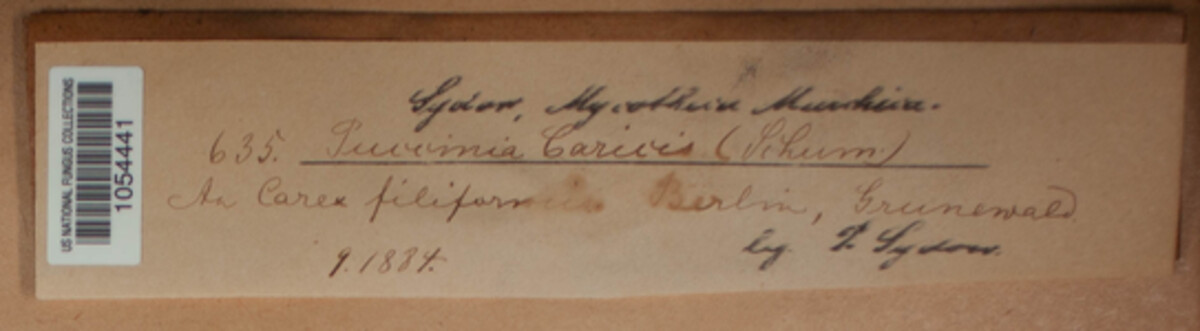 US NATIONAL FUNGUS COLLECTIONS
1054441
Sydow, Mycotheca Marchica.
635. Puccinia Caricis (Schum)
An Carex filiformis. Berlin, Grunewald
9.1884.
leg. P. Sydow.